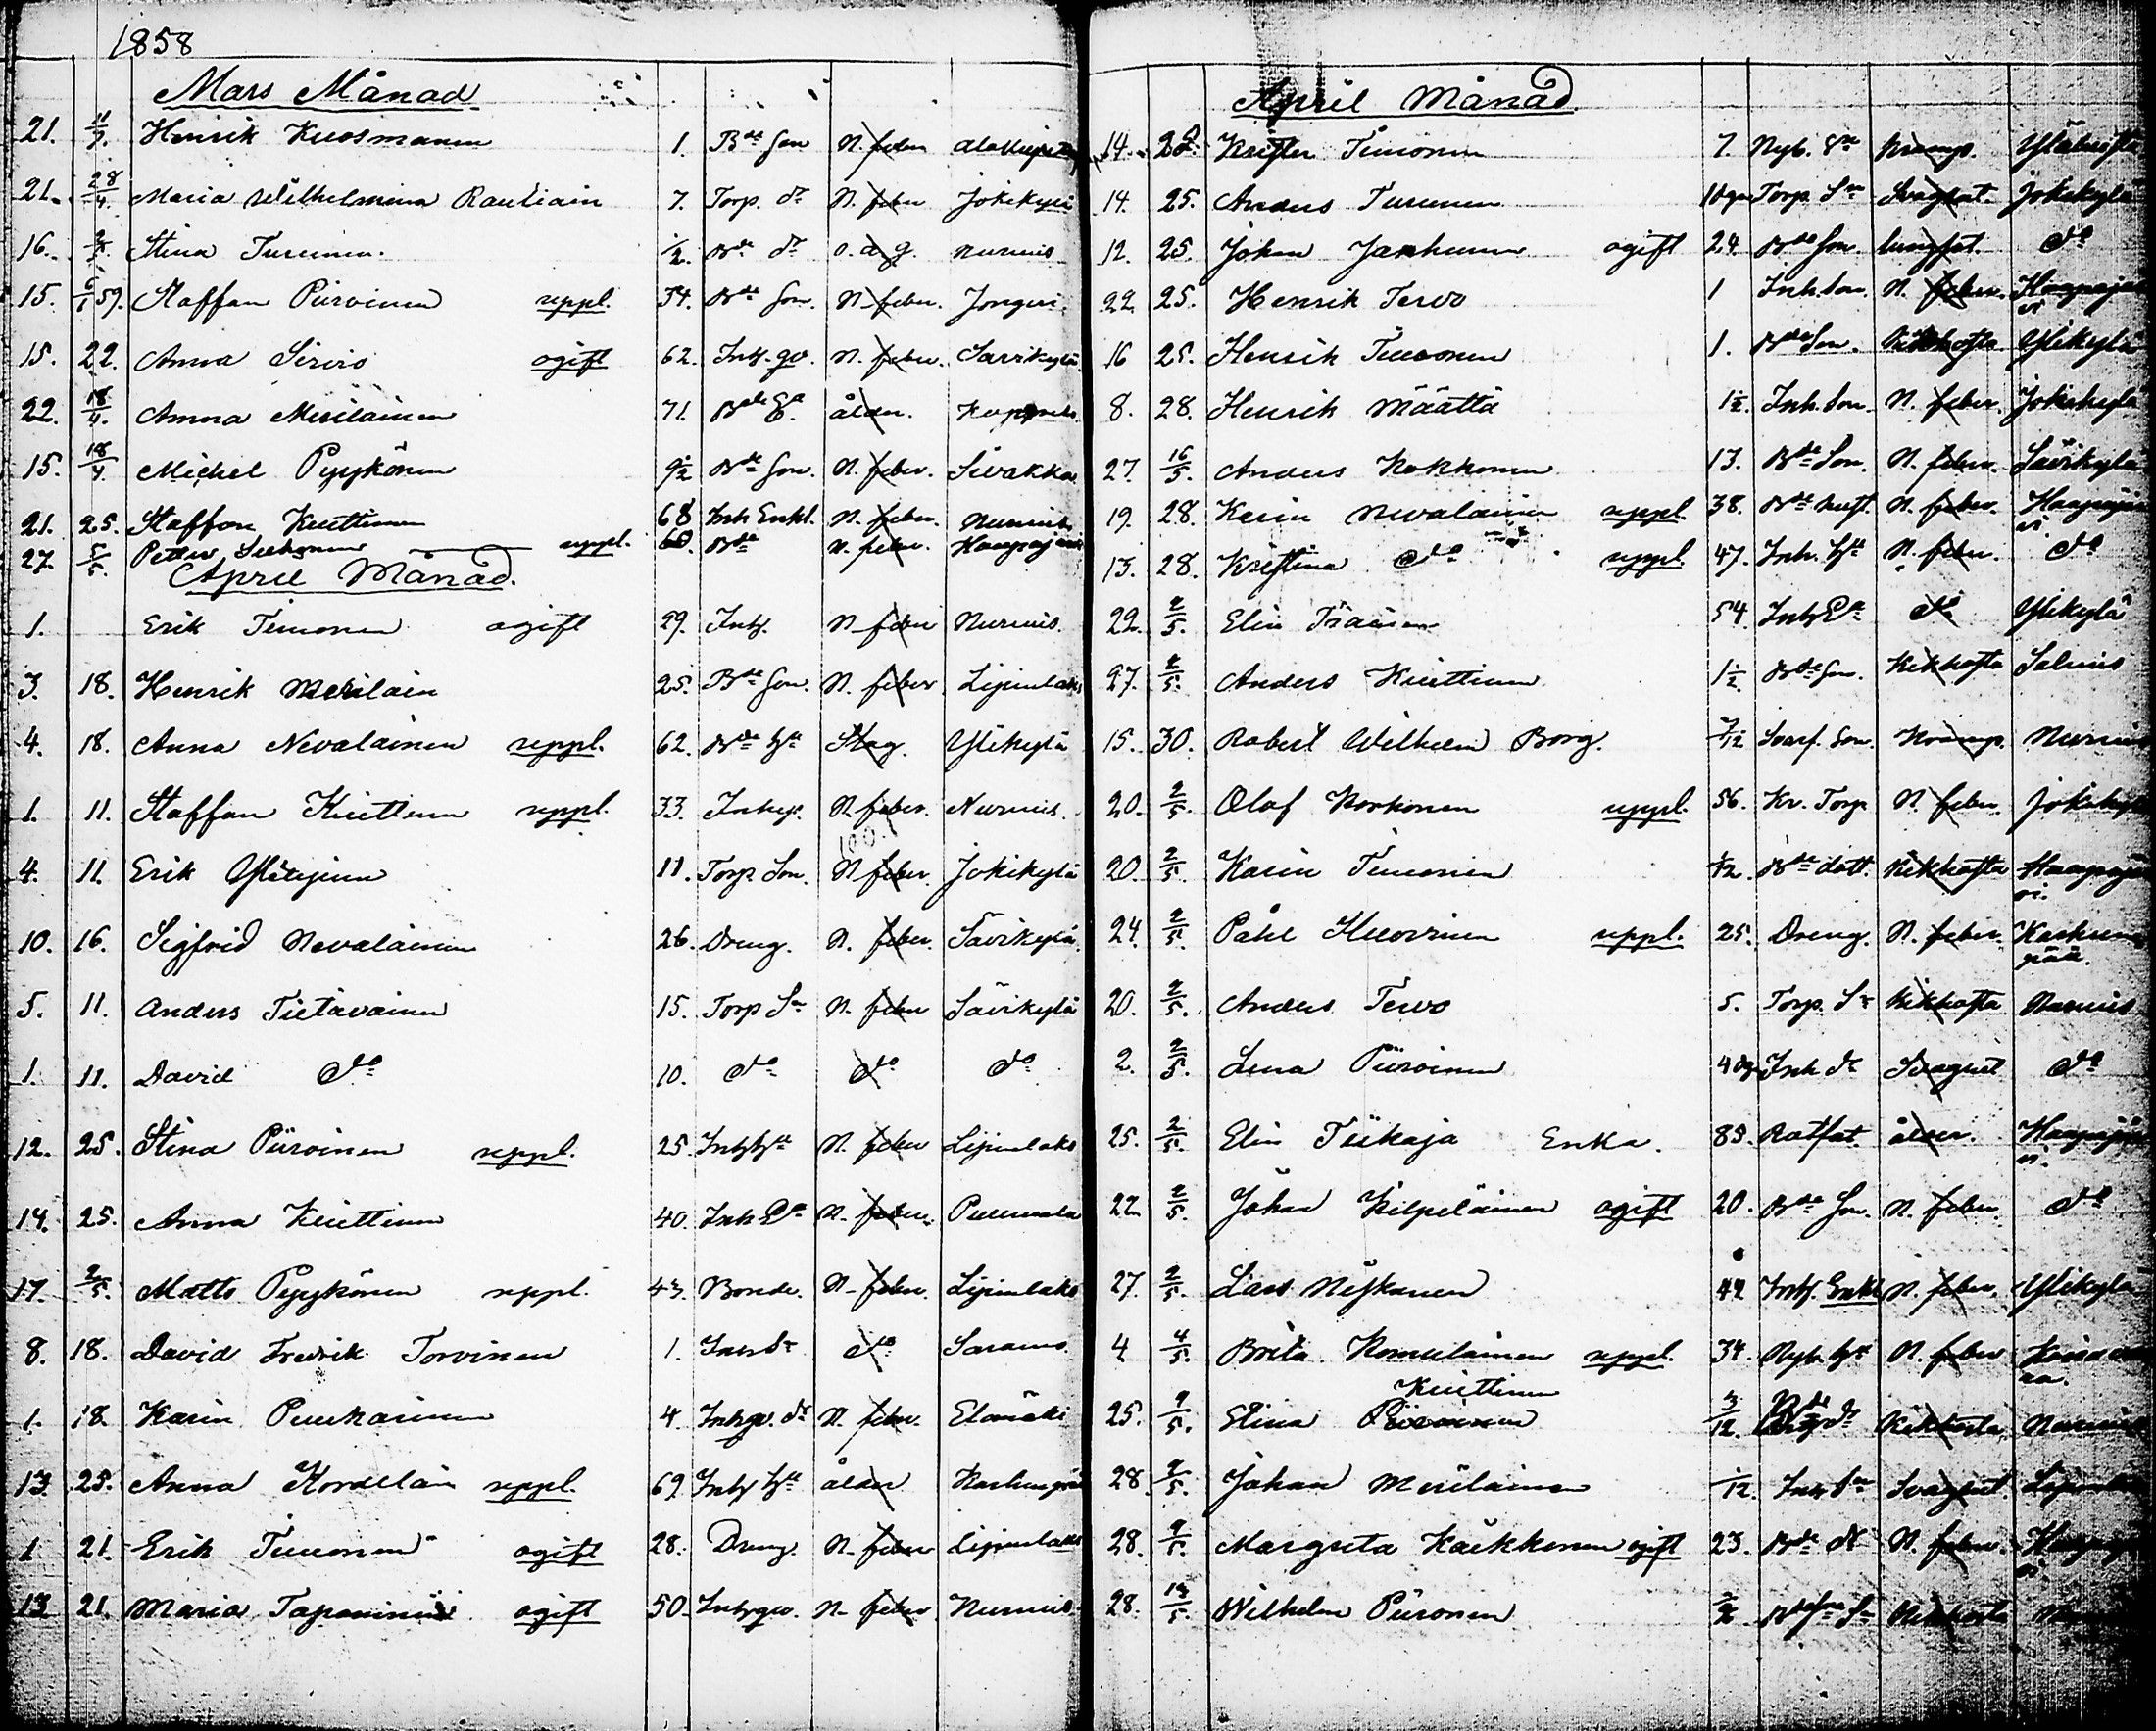 1858
Mars Månad
21. 11/7. Henrik Kuosmanen 1. Bde Son N. feber
21. 28/4. Maria Wilhelmina Rautiain 7. Torp. dr N. feber Jokikylä
16. Stina Turunen. 1/2. Bde dr o. a g. Nurmis
15. 6/1 59. Staffan Piiroinen uppl. 54. Bde Son. N. feber. Jongeri
15. 22. Anna Sirviö ogift 62. Inh. qv. N. feber. Savikylä
22. 18/4. Anna Meriläinen 71. Bde Ea ålder.
15. 18/4. Michel Pyykönen 9 1/2 Bde Son. N. feber. Sivakka
21. 25. Staffan Kuittinen 68 Inh Enkl. N. feber. Nurmis
27. 5/5. Petter uppl. 60. Bde N. feber. Haapajärvi
April Månad.
1. Erik Timonen ogift 29. Inh. N. feber Nurmis.
3. 18. Henrik Meriläin 25. Bde Son. N. feber Lipinlaks
4. 18. Anna Nevalainen uppl. 62. Bde hu Slag. Ylikylä
1. 11. Staffan Kuittinen uppl. 33. Inhys. N. feber. Nurmis.
4. 11. Erik 11. Torp. Son. N. feber. Jokikylä
10. 16. Sigfrid Nevalainen 26. Dreng. N. feber. Savikylä
5. 11. Anders Tietäväinen 15. Torp Sn N. feber Savikylä
1. 11. David do 10. do do do
12. 25. Stina Piiroinen uppl. 25. Inh hu N. feber Lipinlaks
14. 25. Anna Kuittinen 40. Inh Ea N. feber. Puumala
17. 2/5. Matts Pyykönen uppl. 43. Bonde. N. feber. Lipinlaks
8. 18. David Fredrik Torvinen 1. Inh Sn do Saramo
1. 18. Karin Puukarinen 4. Inhqv. dr N. feber. Elomäki
13. 25. Anna Kordelin uppl. 69. Inh hu ålder Karhunpää
1 21. Erik Timonen ogift 28. Dreng. N. feber Lipinlaks
13 21. Maria Taponinen ogift 50. Inhqv. N. feber Nurmis
April Månad.
14. 28. Krister Timonen 7. Nyb. Sn Kramp.
14. 25. Anders Turunen Torp. Sn Jokikylä
12. 25. Johan Janhunen ogift 24. Bde Son. lungsot. do
22 25. Henrik Tervo 1 Inh. Son. N. feber. Haapajärvi
16 25. Henrik Timonen 1. Bde Son. Kikhosta Ylikylä
8. 28. Henrik Määttä 1 1/2. Inh. Son. N. feber. Jokikylä
27. 16/5. Anders Kokkonen 13. Bde Son. N. feber. Savikylä
19. 28. Karin Nevalainen uppl. 38. Bde hust. N. feber. Haapajärvi
13. 28. Kristina do uppl. 47. Inh. hu N. feber. do
22. 2/5. Elin Träisen 54. Inh Ea do Ylikylä
27. 2/5. Anders Kuittinen 1 1/2 Bde Son. Kikhosta Salmis
15. 30. Robert Wilhelm Borg. 7/12 Scarf. Son. Kramp. Nurmis
20. 2/5. Olof Korhonen uppl. 56. Kr. Torp N. feber. Jokikylä
20. 2/5. Karin Timonen 1/12. Bde dott. Kikhosta Haapajärvi.
24. 2/5. Påhl Huovinen uppl. 25. Dreng. N. feber. Karhunpää.
20. 2/5. Anders Tervo 5. Torp. Sn Kikhosta Nurmis
2. 2/5. Lena Piiroinen 4 dgr Inh dr Svaghet do
25. 2/5. Elin Tiikaja Enka. 85. Rotfat. ålder. Haapajärvi.
22 2/5. Johan Kilpeläinen ogift 20. Bde Son. N. feber. do
27. 2/5. Lars Niskanen 42 Inh. Enkl N. feber. Ylikylä
4 4/5. Brita Romulainen uppl. 34. Nyb. hu N. feber
Kuittinen
25. 9/5. Elina Piiroinen 3/12. Bde dr Kikhosta. Nurmis
28 9/5. Johan Meriläinen 1/12. Inh Sn Svaghet
28. 9/5. Margreta Käkkönen ogift 23. Bde dr N. feber.
28. 13/5. Wilhelm Piironen Kikhosta